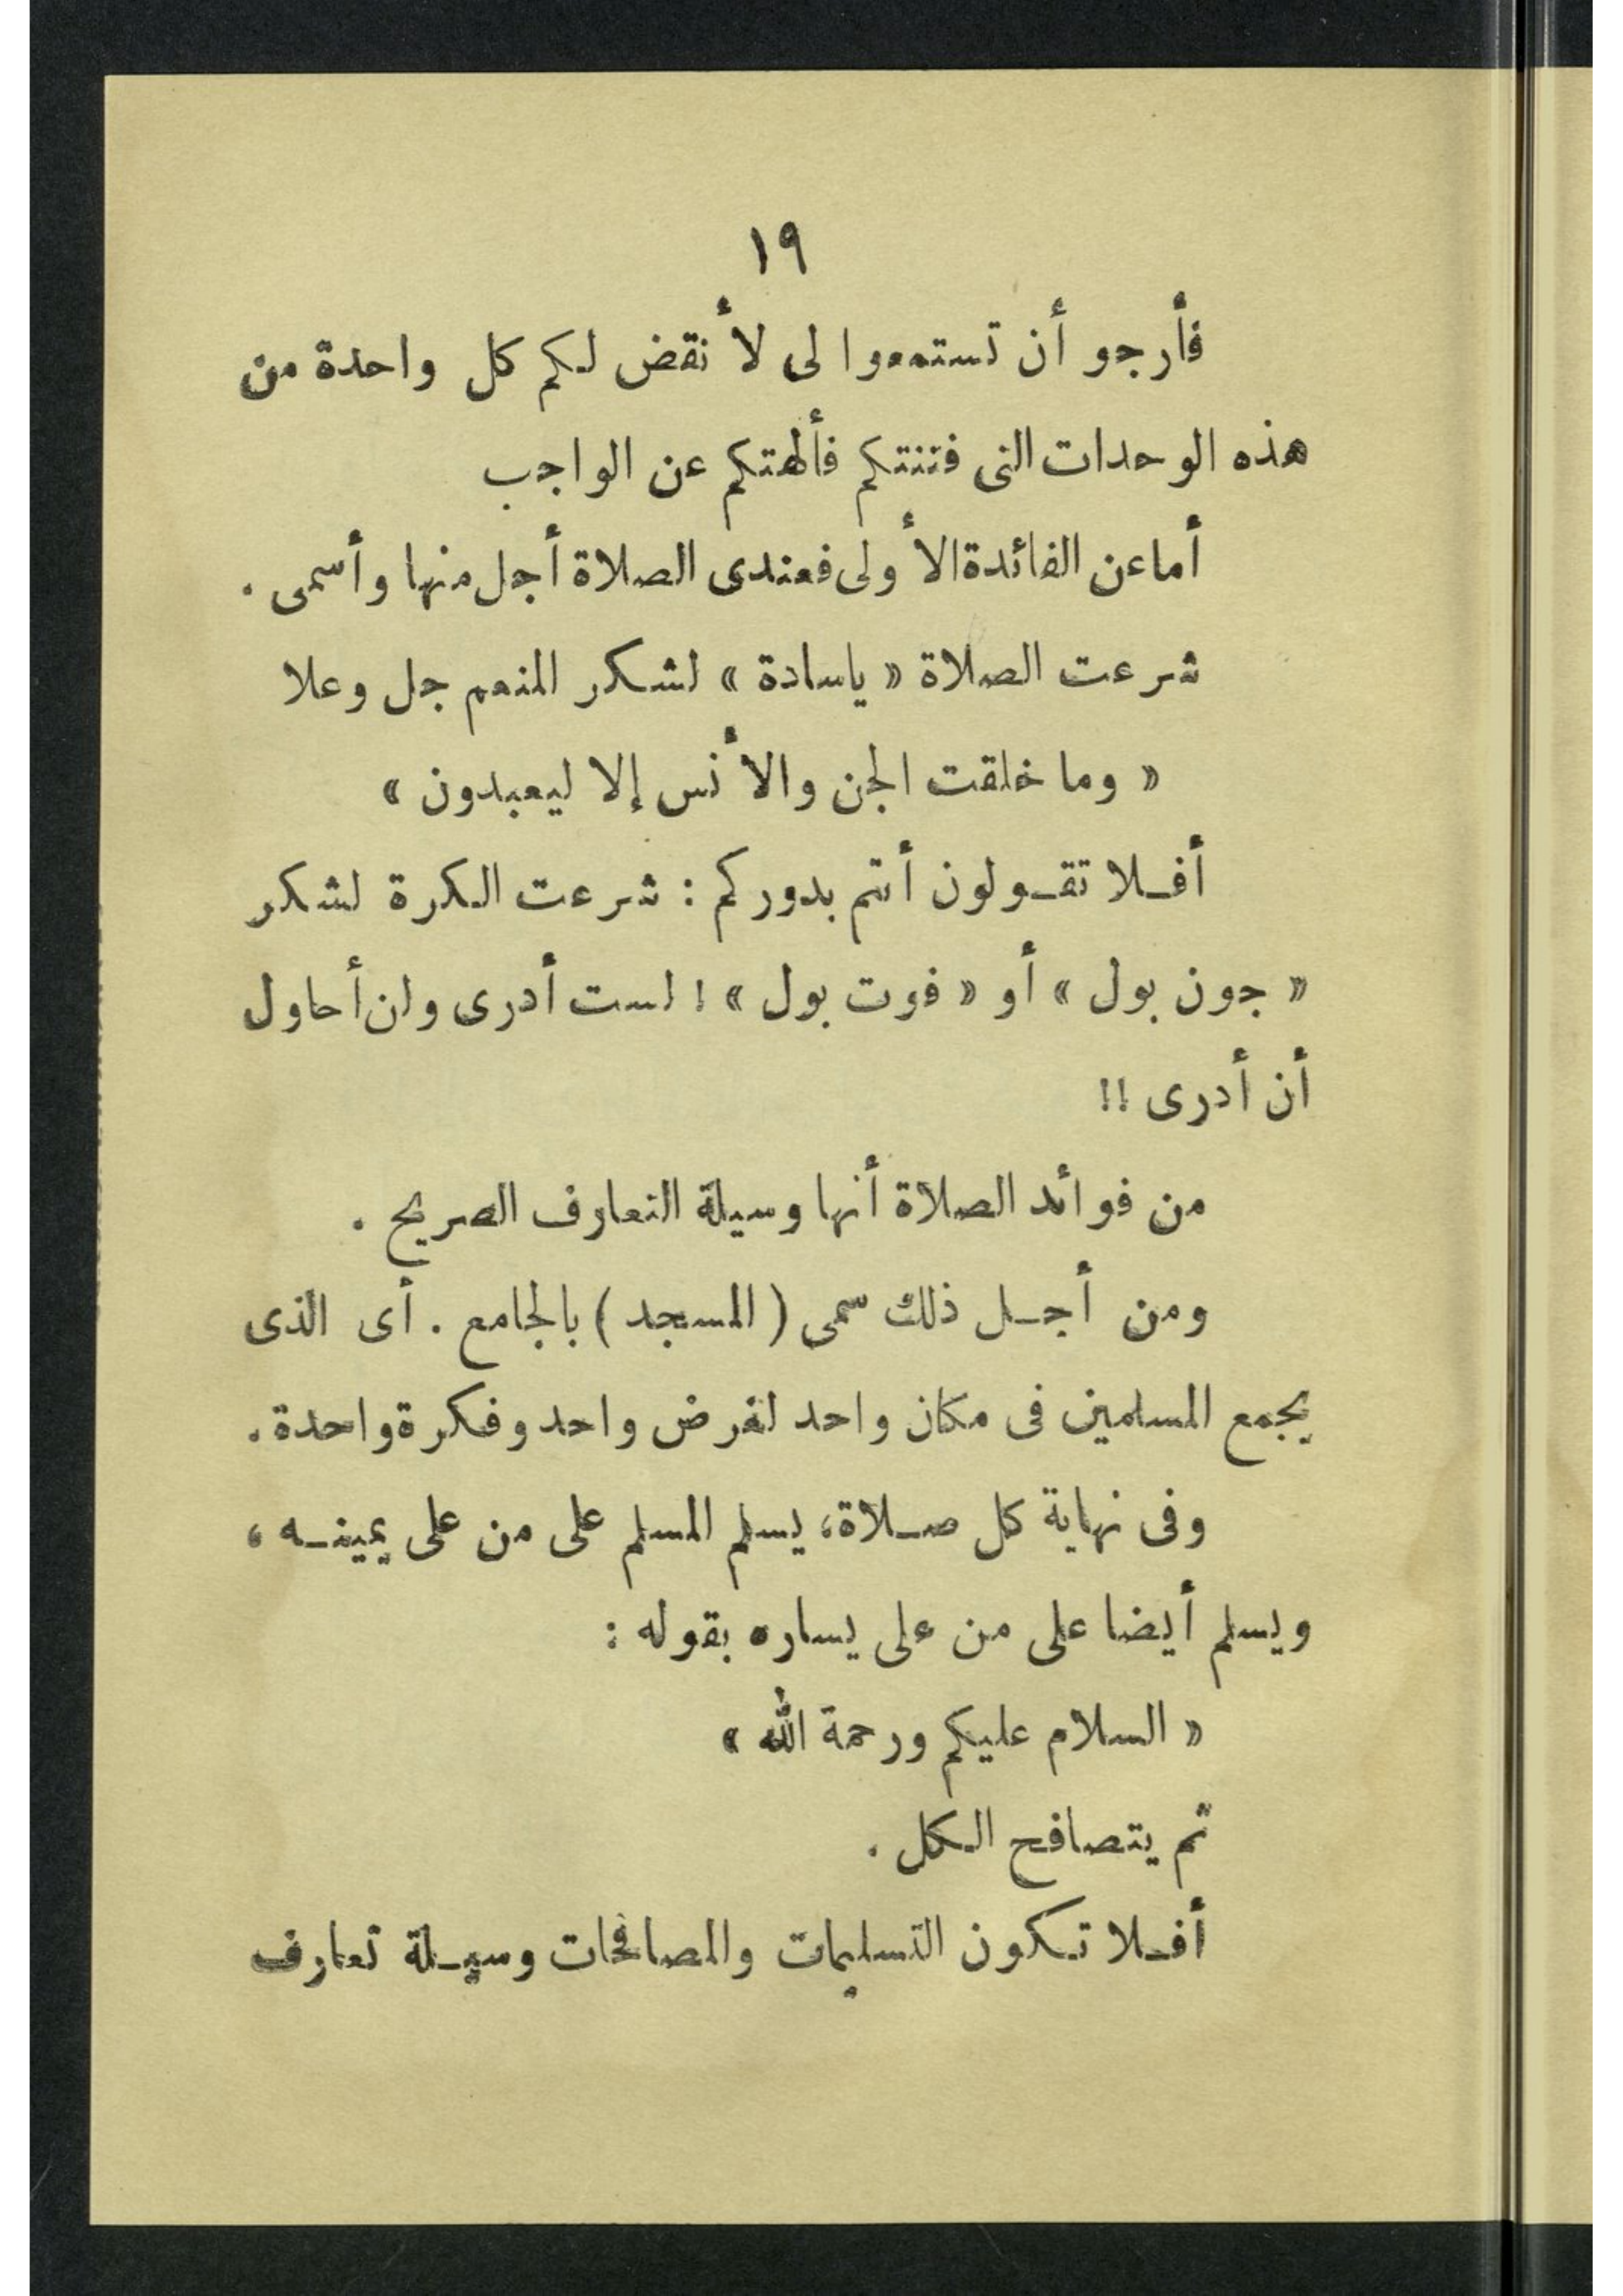 ١٩
فأرجو أن تستمعوا لى لأنقض لكم كل واحدة من
هذه الوحدات التى فتنتكم فألهتكم عن الواجب
أما عن الفائدة الأولى فعندى الصلاة أجل منها وأسمى .
شرعت الصلاة « ياسادة » لشكر المنعم جل وعلا
« وما خلقت الجن والأنس إلا ليعبدون »
أفلا تقولون أنتم بدوركم : شرعت الكرة لشكر
« جون بول » أو « فوت بول » ! لست أدرى ولن أحاول
أن أدرى !!
من فوائد الصلاة أنها وسيلة التعارف الصريح .
ومن أجل ذلك سمى ( المسجد ) بالجامع . أى الذى
يجمع المسلمين فى مكان واحد لغرض واحد وفكرة واحدة .
وفى نهاية كل صلاة ، يسلم المسلم على من على يمينه ،
ويسلم أيضا على من على يساره بقوله :
« السلام عليكم ورحمة الله »
ثم يتصافح الكل .
أفلا تكون التسليمات والمصافحات وسيلة تعارف